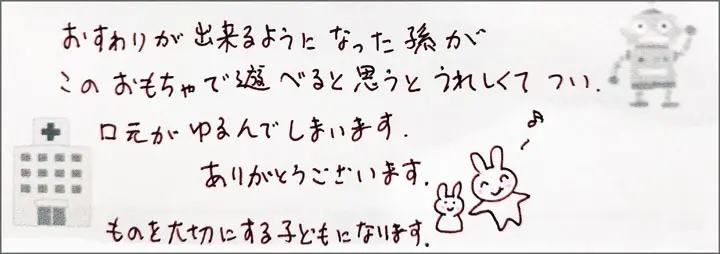 おすわりが出来るようになった孫が
このおもちゃで遊べると思うとうれしくてつい.
口元がゆるんでしまいます.
ありがとうございます.
ものを大切にする子どもになります.